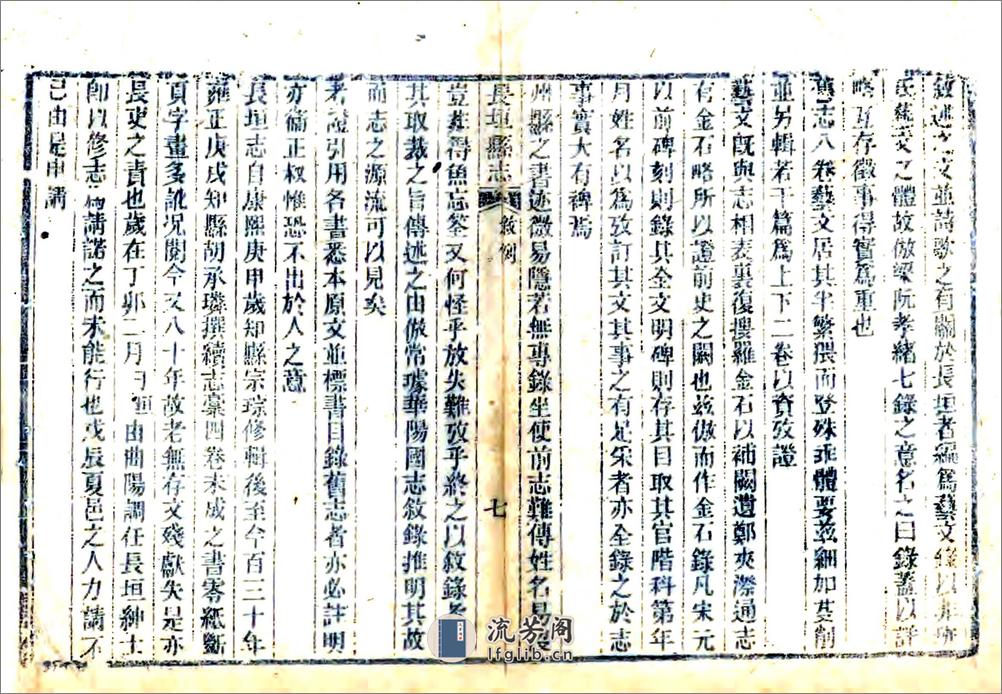 敘述之文並詩歌之有關於長垣者編爲藝文錄以非專
藝文之體故倣梁阮孝緒七錄之意名之曰錄蓋以詳
略互存徵事得實爲重也
舊志八卷藝文居其半繁猥而登殊乖體要茲細加芟削
並另輯若干篇爲上下二卷以資攷證
藝文既與志相表裏復搜羅金石以補闕遺鄭夾漈通志
有金石略所以證前史之闕也茲倣而作金石錄凡宋元
以前碑刻則錄其全文明碑則存其目取其官階科第年
月姓名以爲攷訂其文其事之有足采者亦全錄之於志
事實大有裨焉
州縣之書迹微易隱若無專錄坐使前志難傳姓名易
長垣縣志
敘例
七
豈甚得魚忘筌又何怪乎放失難攷乎終之以敘錄
其取裁之旨傳述之由倣常璩華陽國志敘錄推明其故
而志之源流可以見矣
考證引用各書悉本原文並標書目錄舊志者亦必註明
亦籥正权惟恐不出於人之意
長垣志自康熙庚申歲知縣宗琮修輯後至今百三十年
雍正庚戌知縣胡承璘撰續志藁四卷未成之書零紙斷
頁字畫多訛况閱今又八十年故老無存文殘獻失是亦
長吏之責也歲在丁卯二月 垣由曲陽調任長垣紳士
卽以修志 請諾之而未能行也戊辰夏邑之人力請不
已由是申請
流芳阁
lfglib.cn